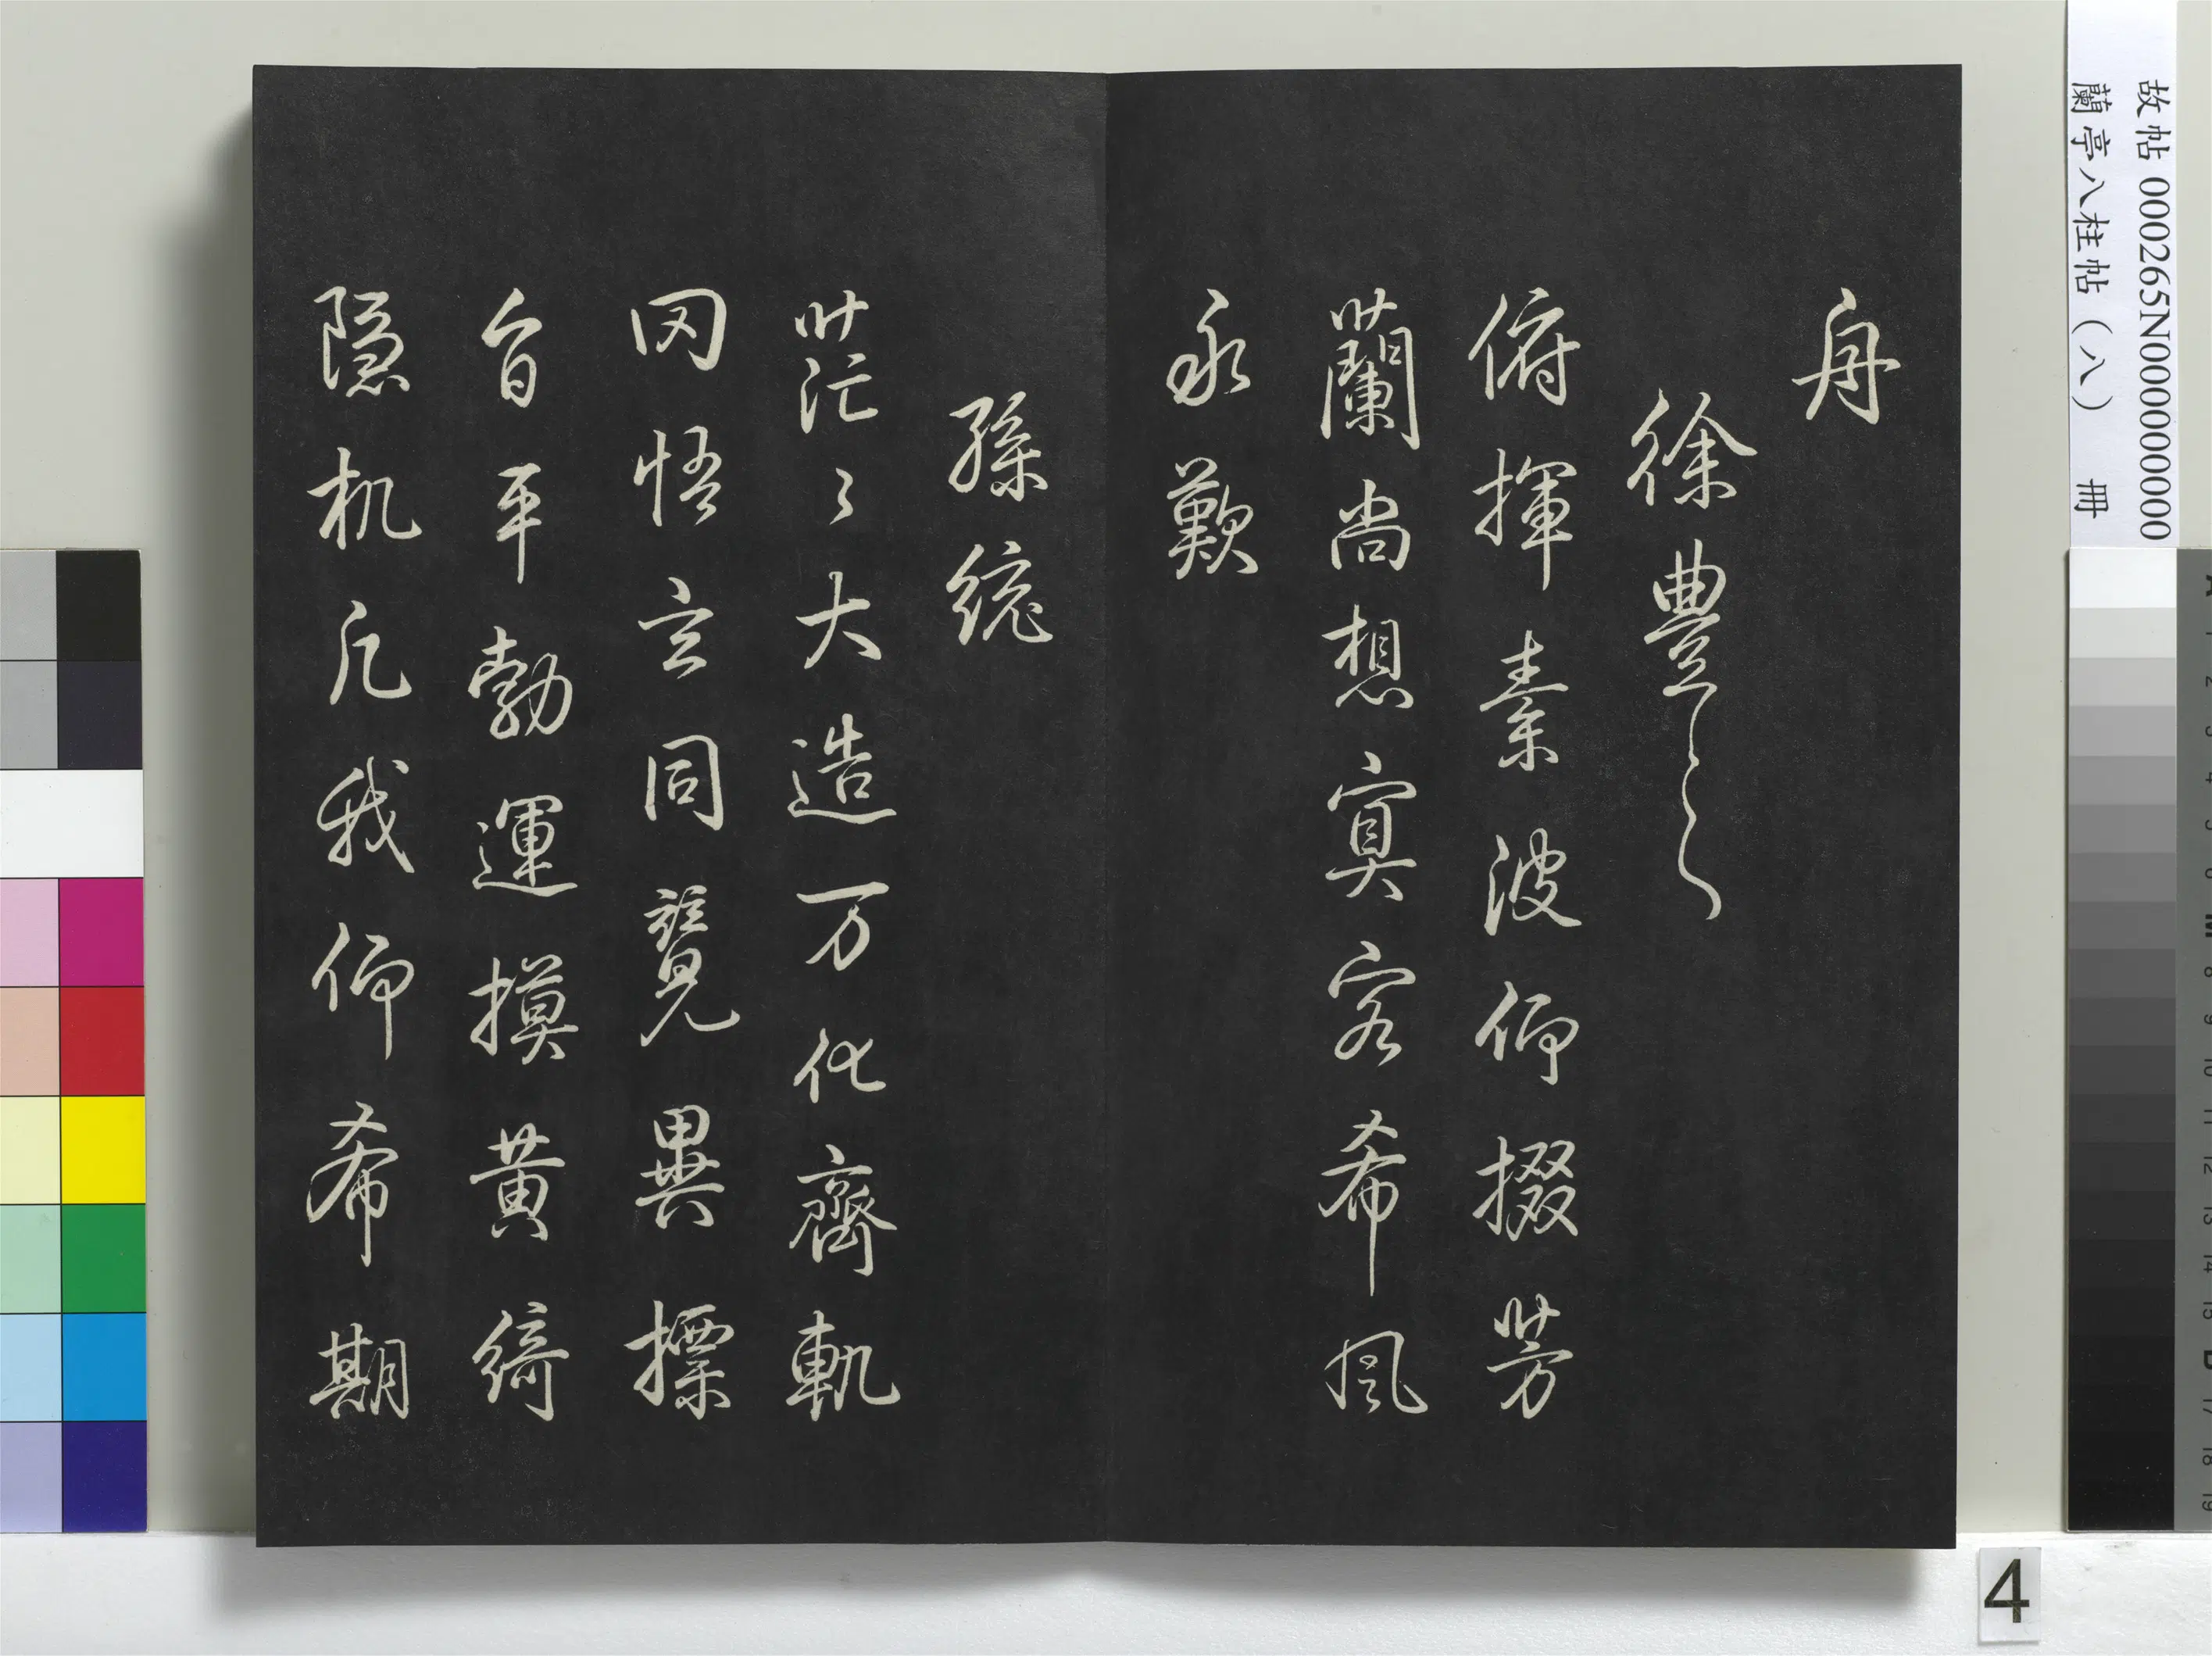 舟
徐豐之
俯揮素波仰掇芳
蘭尚想冥客希風
永歎
孫統
茫〻大造万化齊軌
罔悟玄同競異摽
旨平勃運摸黄綺
隠机凢我仰希期
故帖 000265N000000000
蘭亭八柱帖(八) 冊
4